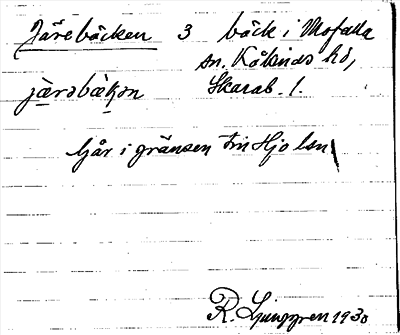 Järebäcken 3 bäck i Mofalla
sn. Kåkinds hd,
järəbäḳən Skarab. l.
Går i gränsen t. Hjo lsn
R. Ljunggren 1930